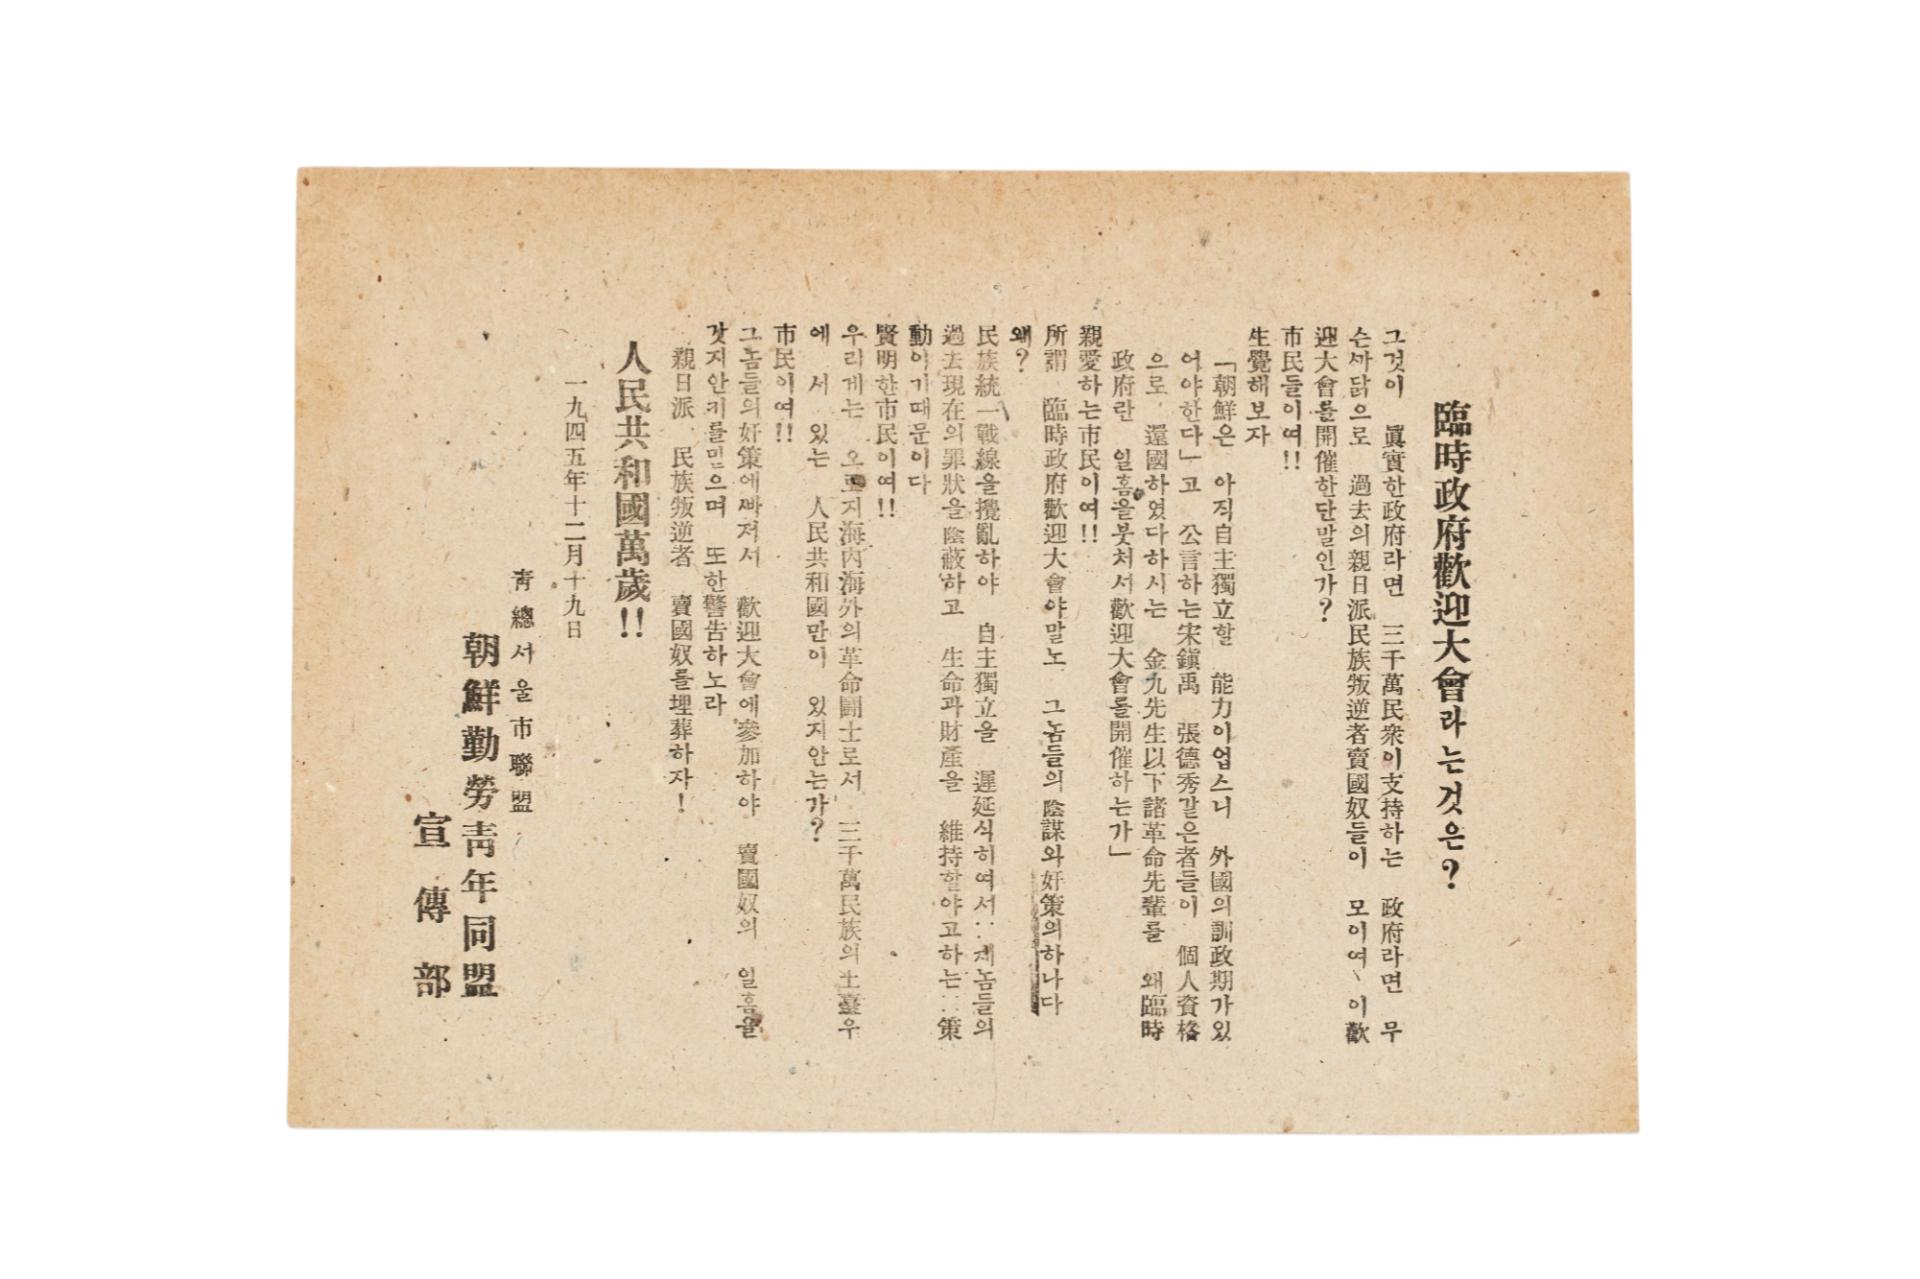 臨時政府歡迎大會라는것은?
그것이 眞實한政府라면 三千萬民衆이支持하는 政府라면 무
슨까닭으로 過去의親日派民族叛逆者賣國奴들이 모이여、이歡
迎大會를開催한단말인가?
市民들이여!!
生覺해보자
「朝鮮은 아직自主獨立할 能力이업스니 外國의訓政期가있
어야한다」고 公言하는宋鎭禹 張德秀갈은者들이 個人資格
으로 還國하였다하시는 金九先生以下諸革命先輩를 왜臨時
政府란 일홈을붓처서歡迎大會를開催하는가」
親愛하는市民이여!!
所謂 臨時政府歡迎大會야말노 그놈들의陰謀와奸策의하나다
왜?
民族統一戰線을攪亂하야 自主獨立을 遲延식히여서‥제놈들의
過去現在의罪狀을陰蔽하고 生命과財產을 維持할야고하는‥策
動이기때문이다
賢明한市民이여!!
우리게는 오로지海內海外의革命鬪士로서 三千萬民族의土臺우
에 서 있는 人民共和國만이 있지안는가?
市民이여!!
그놈들의奸策에빠저서 歡迎大會에參加하야 賣國奴의 일홈을
갖지안키를믿으며 또한警告하노라
親日派 民族叛逆者 賣國奴를埋葬하자!
人民共和國萬歲!!
一九四五年十二月十九日
靑總서울市聯盟
朝鮮勤勞靑年同盟
宣傳部